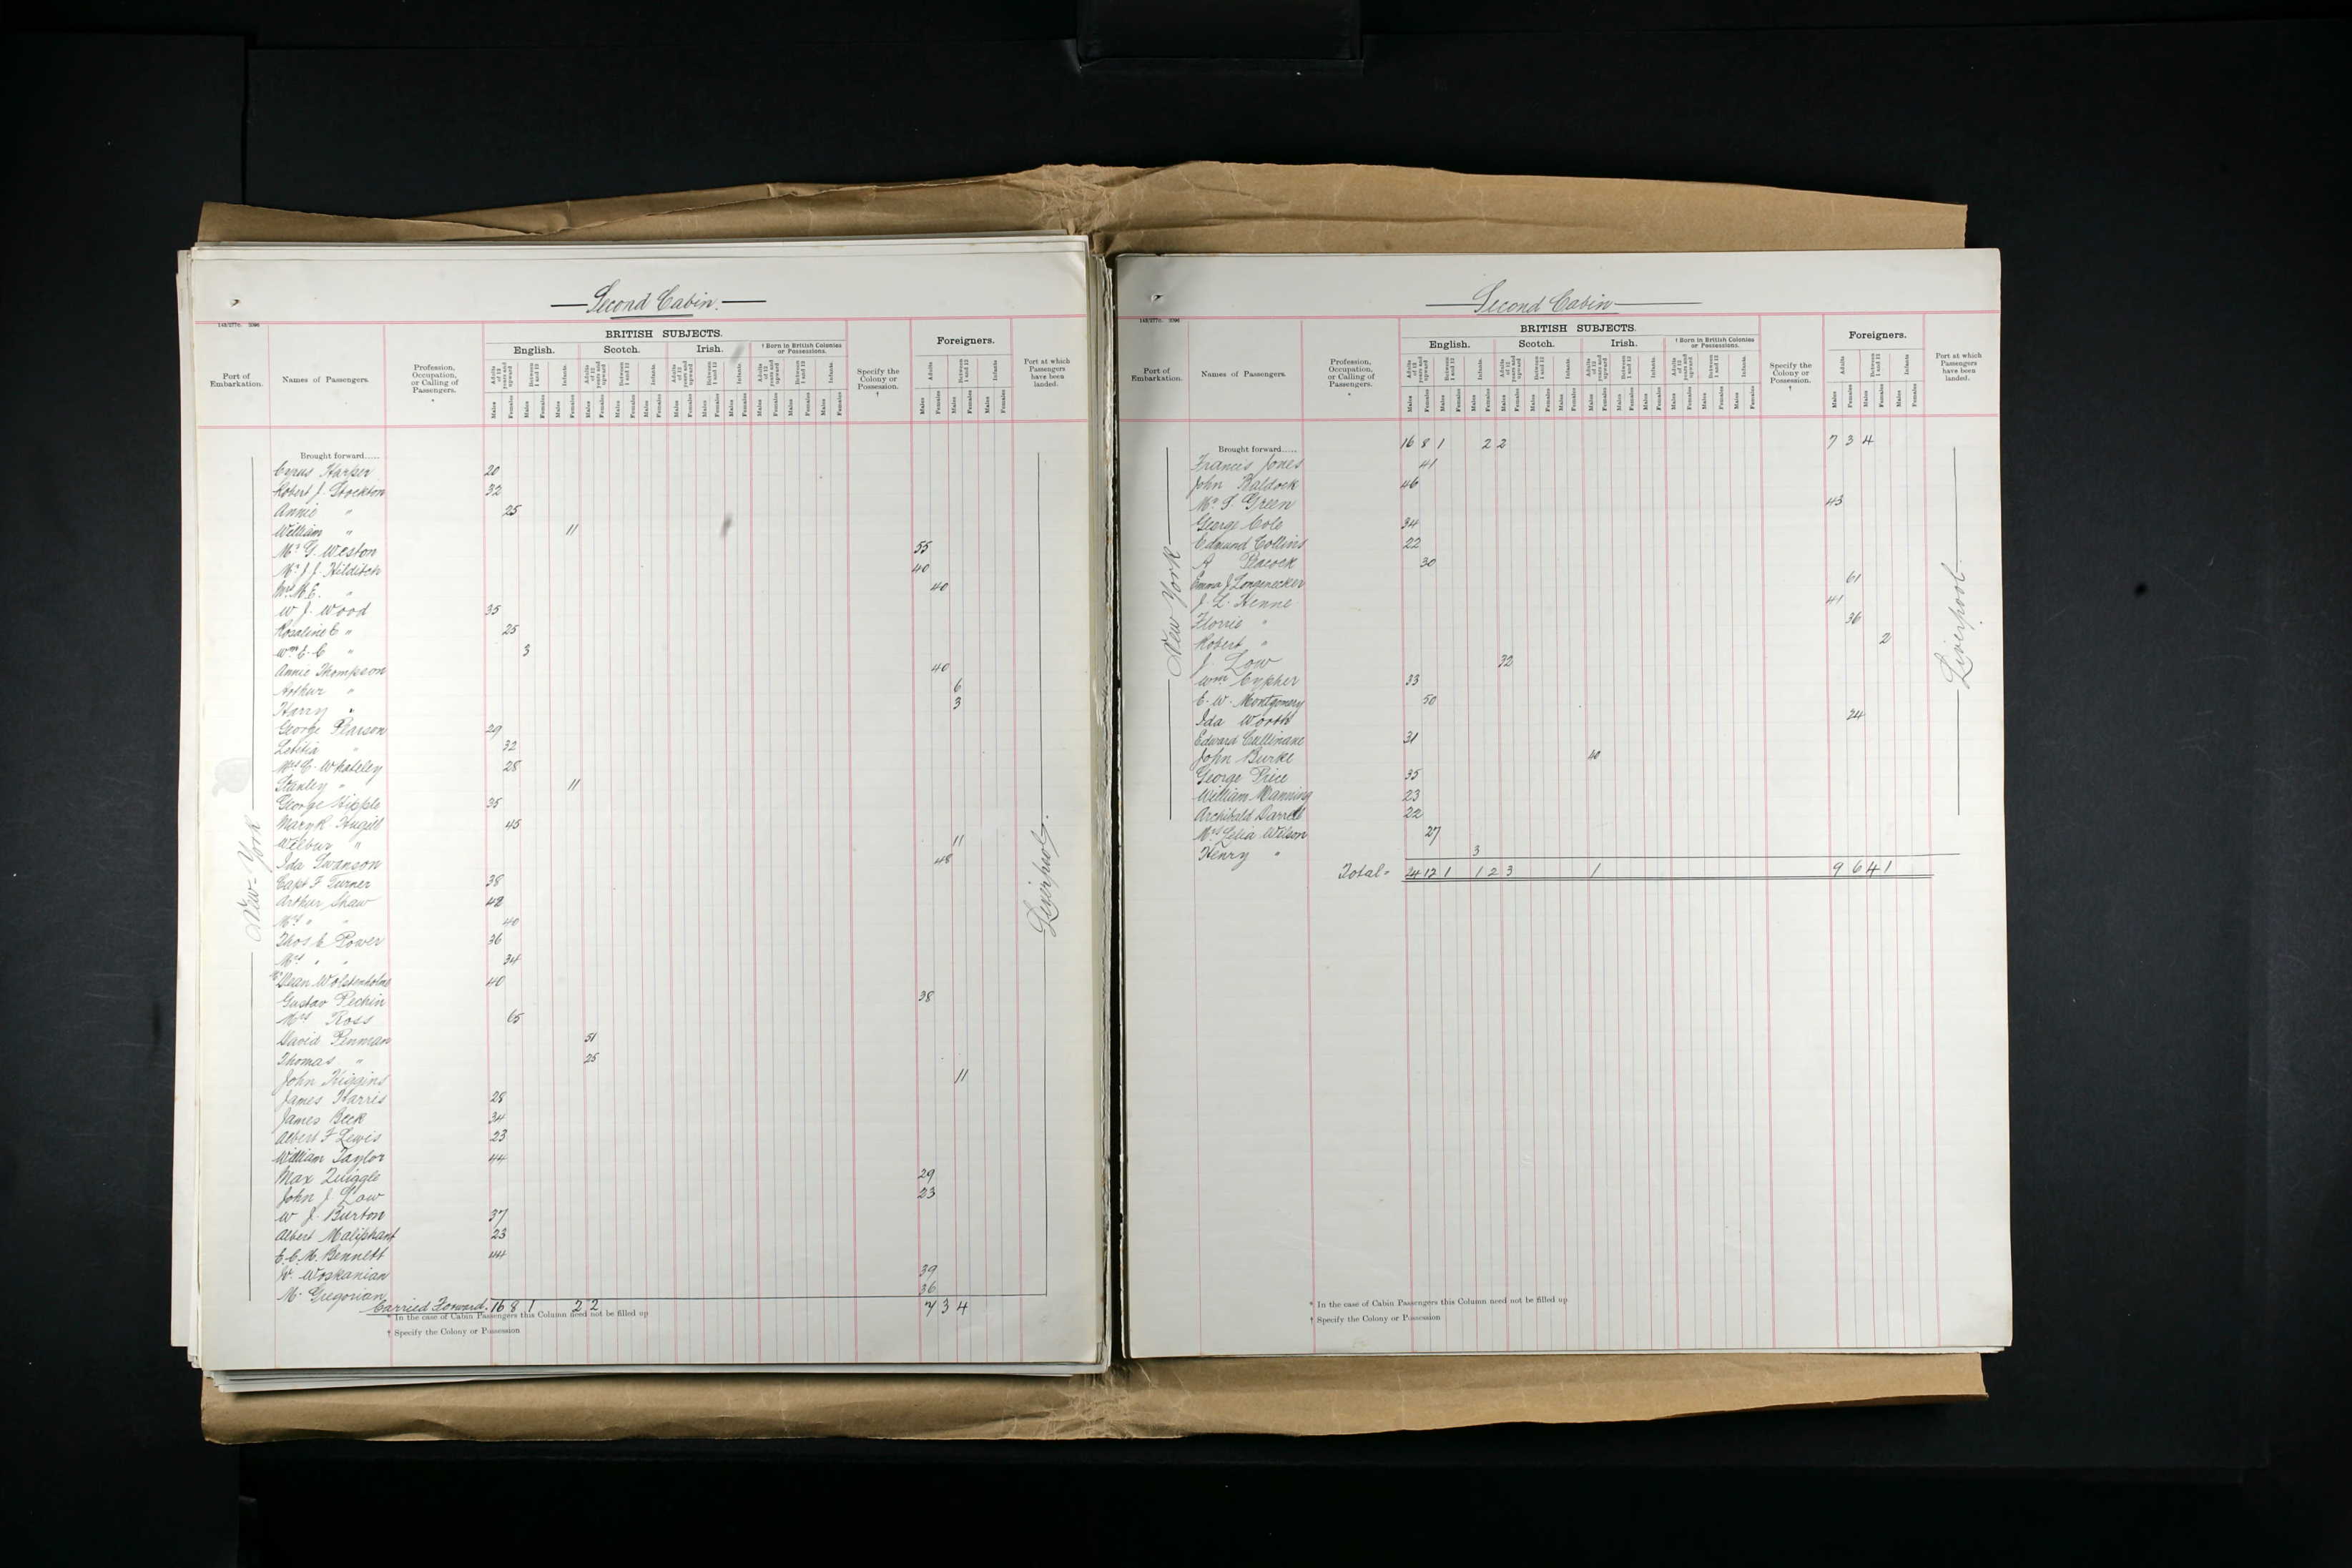 Second Cabin.
143/277c. 2096
BRITISH SUBJECTS.
English. Scotch. Irish. † Born in British Colonies or Possessions.
Foreigners.
Port of Embarkation.
Names of Passengers.
Profession, Occupation, or Calling of Passengers. *
Adults of 12 years and upward Between 1 and 12 Infants.
Males Females
Specify the Colony or Possession. †
Port at which Passengers have been landed.
New-York
Liverpool.
Brought forward.....
Cyrus Harper 20
Robert J. Stockton 32
Annie " 25
William " 11
Mr. G. Weston 55
Mr. J. J. Hilditch 40
Mrs. M. E. " 40
W J. Wood 35
Rosaline E " 25
Wm E. C " 3
Annie Thompson 40
Arthur " 6
Harry " 3
George Pearson 29
Letitia " 32
Mrs C. Whateley 28
Stanley " 11
George Hipple 35
Mary R. Hugill 45
Wilbur " 11
Ida Swanson 48
Capt F Turner 38
Arthur Shaw 42
Mrs " " 40
Thos E Power 36
Mrs " " 34
Mr Dean Wolstenholme 40
Gustav Pechin 38
Mrs Ross 65
David Penman 51
Thomas " 25
John Higgins 11
James Harris 28
James Beck 34
Albert F Lewis 23
William Taylor 44
Max Zwiggle 29
John J Law 23
W J. Burton 37
Albert Maliphant 23
E. C. M. Bennett 44
Woskanian 39
M. Gregorian 36
Carried Forward. 16 8 1 2 2 7 3 4
* In the case of Cabin Passengers this Column need not be filled up
† Specify the Colony or Possession
Second Cabin
143/277c. 2096
BRITISH SUBJECTS.
English. Scotch. Irish. † Born in British Colonies or Possessions.
Foreigners.
Port of Embarkation.
Names of Passengers.
Profession, Occupation, or Calling of Passengers. *
Adults of 12 years and upward Between 1 and 12 Infants.
Males Females
Specify the Colony or Possession. †
Port at which Passengers have been landed.
New York
Liverpool
Brought forward..... 16 8 1 2 2 7 3 4
Francis Jones 41
John Baldock 46
Mr. S. Green 43
George Cole 34
Edmund Collins 22
A Peacock 30
Emma J Longenecker 61
J. L. Henne 41
Florrie " 36
Robert " 2
J. Low 32
Wm Cypher 33
E. W. Montgomery 50
Ida Worth 24
Edward Cullinane 31
John Burke 40
George Price 35
William Manning 23
Archibald Darrell 22
Mrs Lelia Wilson 27
Henry " 3
Total= 24 12 1 1 2 3 1 9 6 4 1
* In the case of Cabin Passengers this Column need not be filled up
† Specify the Colony or Possession